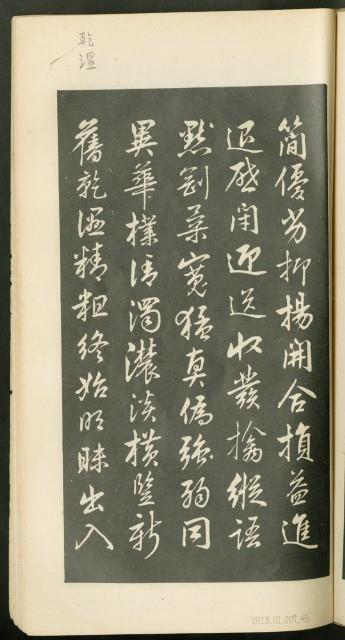 簡優劣抑揚開合損益進
退啟閉迎送收發擒縱語
默剛柔寬猛真偽強弱同
異華樸清濁濃淡橫豎新
舊乾濕精粗終始明昧出入
乾
濕
2018.01.007_46